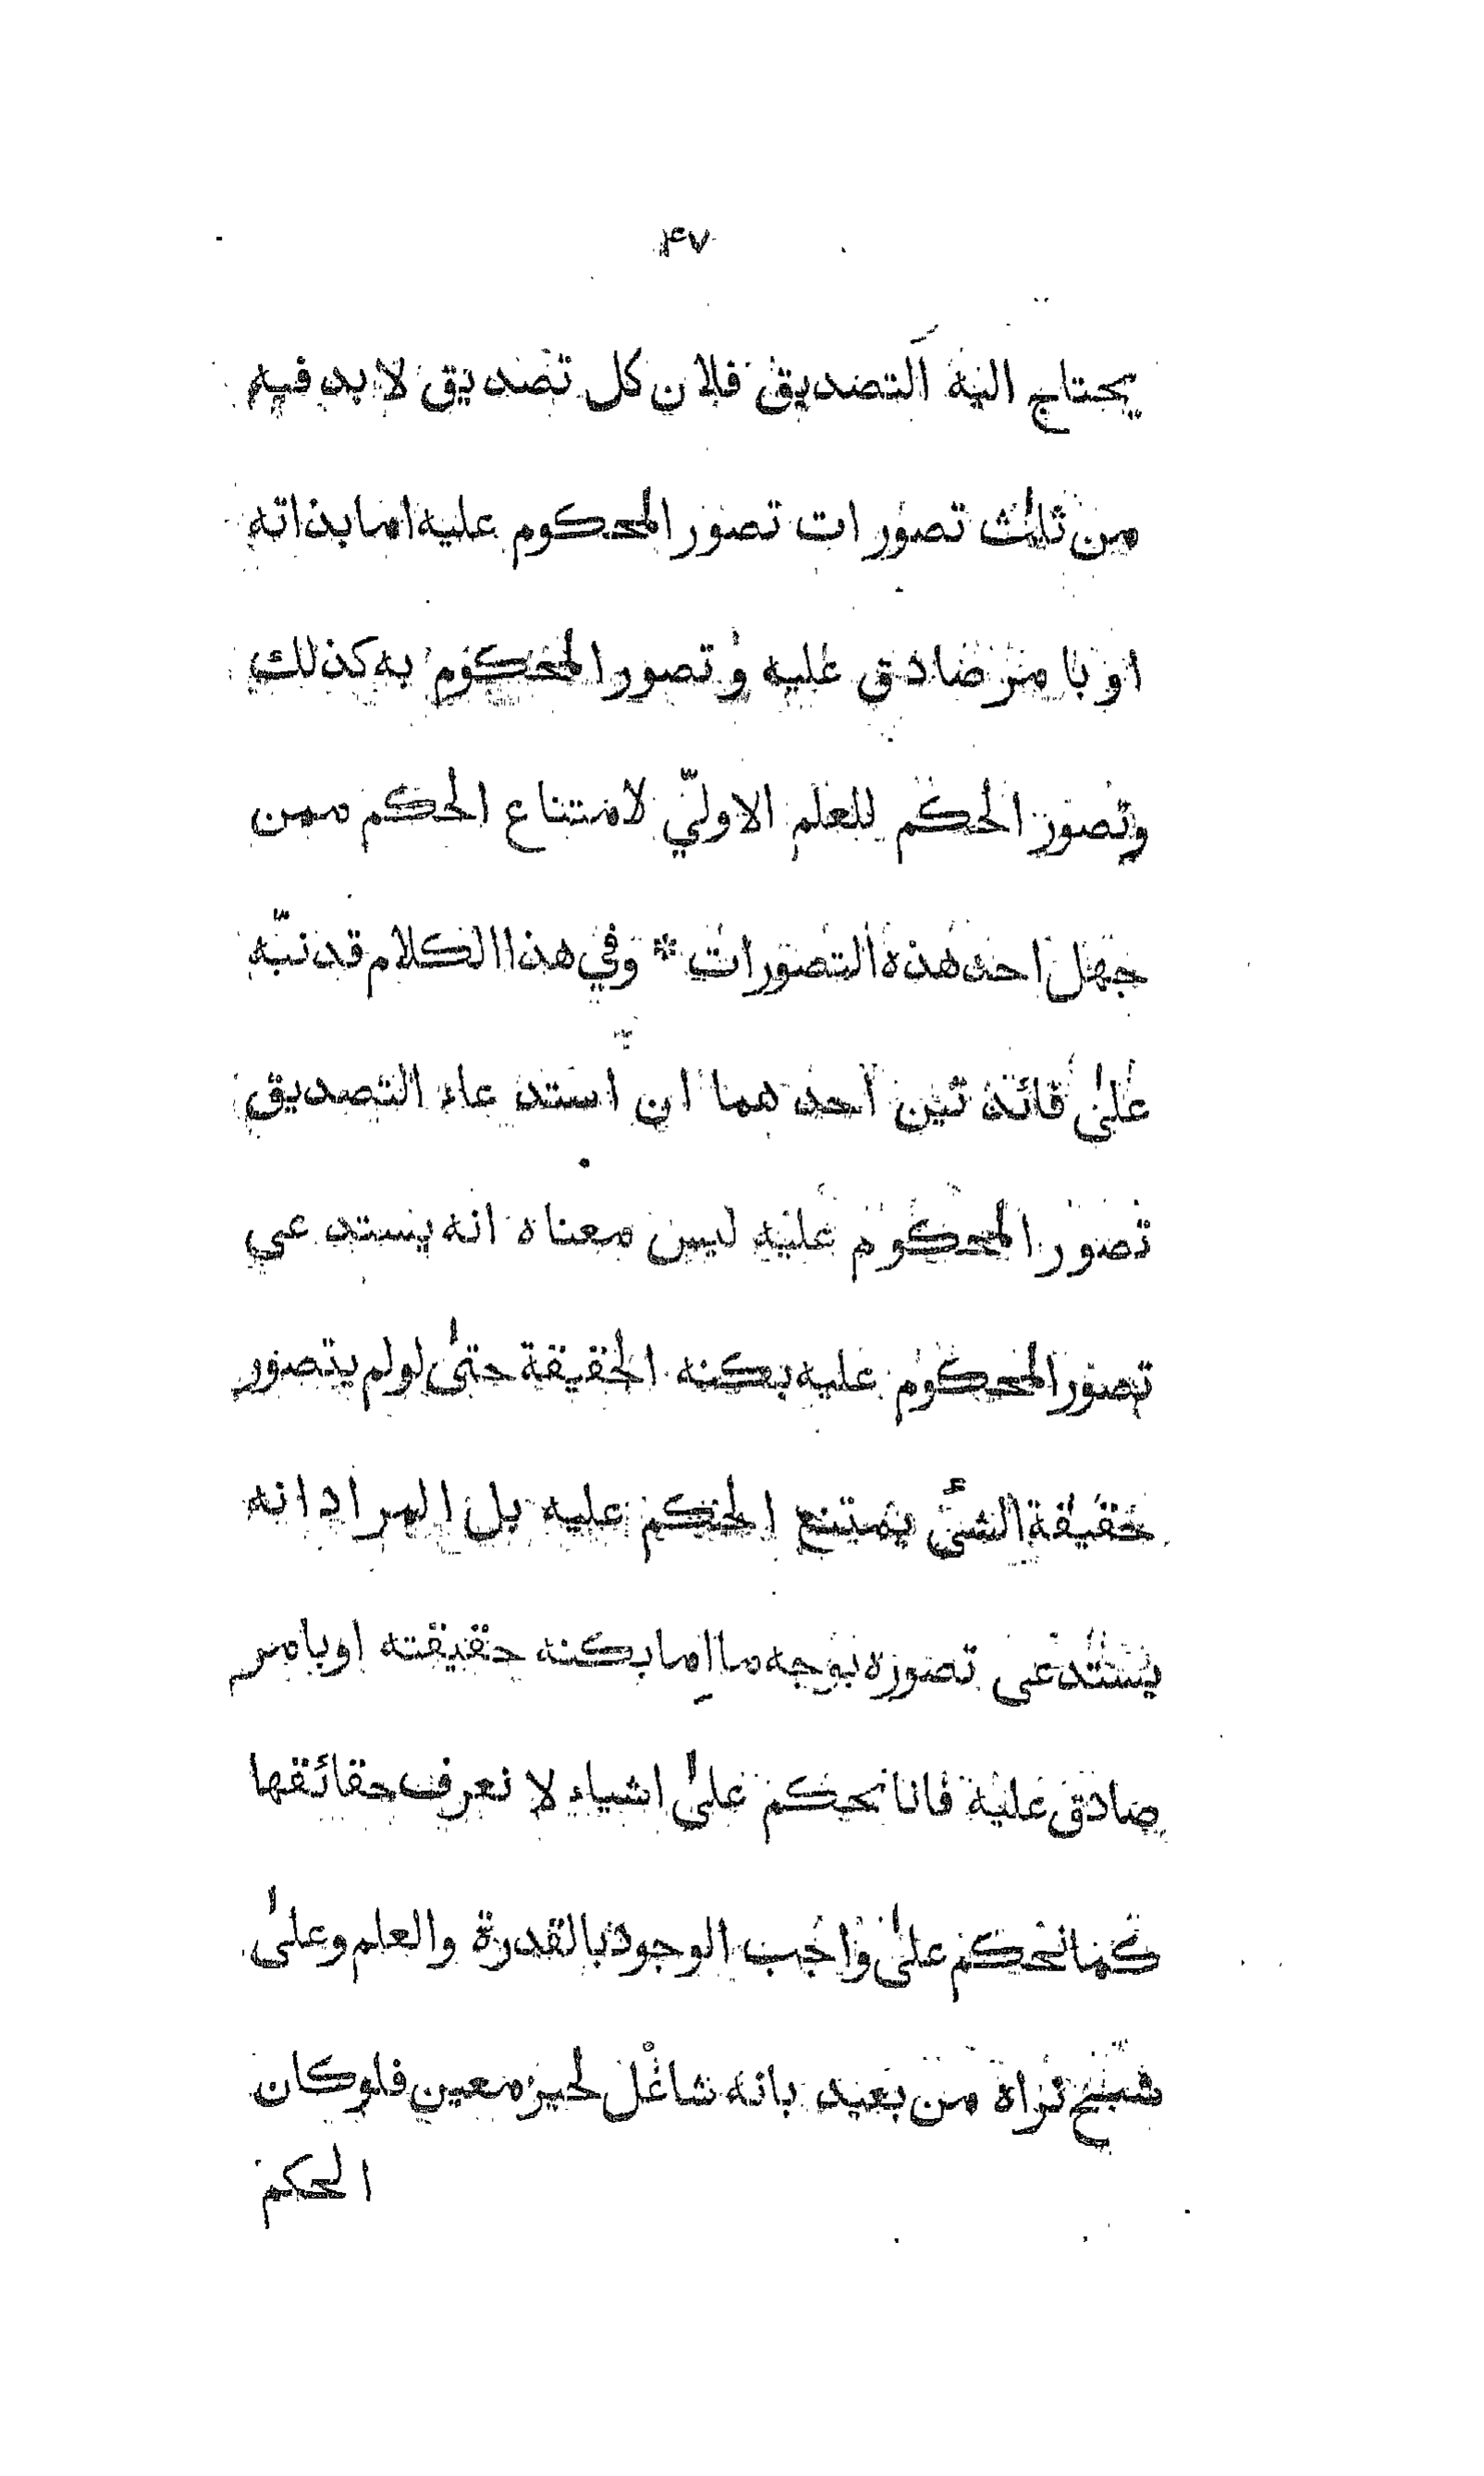 ۴۷
يحتاج اليه التصديق فلان كل تصديق لا بد فيه
من ثلٰث تصورات تصور المحكوم عليه اما بذاته
او بامر صادق عليه و تصور المحكوم به كذلك
وتصور الحكم للعلم الاوليّ لامتناع الحكم ممن
جهل احد هذه التصورات * وفي هذا الكلام قد نبّه
علىٰ فائدتين احدهما ان استدعاء التصديق
تصور المحكوم عليه ليس معناه انه يستدعي
تصور المحكوم عليه بكنه الحقيقة حتىٰ لو لم يتصور
حقيقة الشئ يمتنع الحكم عليه بل المراد انه
يستدعى تصوره بوجه ما اِما بكنه حقيقته او بامر
صادق عليه فانا نحكم علىٰ اشياء لا نعرف حقائقها
كما نحكم علىٰ واجب الوجود بالقدرة والعلم وعلىٰ
شبح نراه من بعيد بانه شاغل لحيز معين فلو كان
الحكم